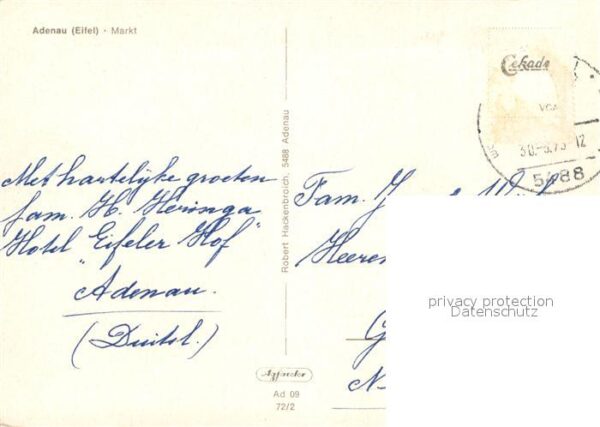 Adenau (Eifel) · Markt
Cekade
30.-5.73-12
5488
Met hartelijke groeten
fam. H. Heringa
Hotel "Eifeler Hof"
Adenau.
(Duitsl.)
Robert Hackenbroich, 5488 Adenau
Fam.
Heeren
privacy protection
Datenschutz
Ad 09
72/2